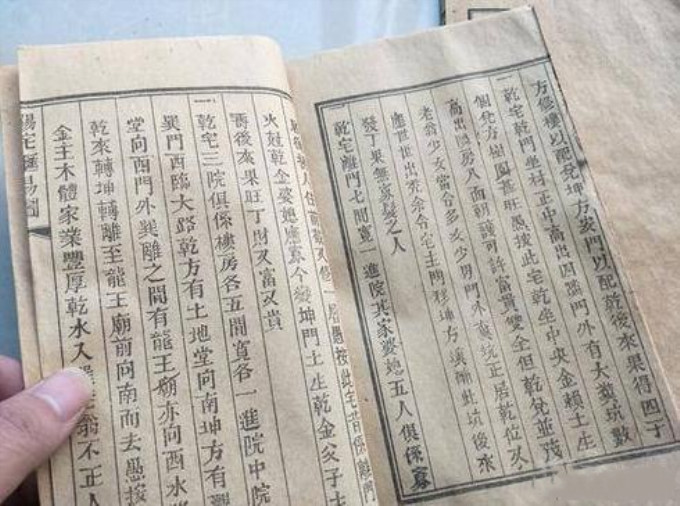 方修樓以配兌坤方安門以配乾後來果得四子
一乾宅乾門坐村正中高出四隣門外有大糞坑數
個兌方樹園甚旺愚按此宅乾坐中央金賴土生
高出隣房人面朝護可許富貴雙全但乾兌並茂
老翁少女當合多女少男門外糞坑正居乾位又
應世世出禿余令宅主門移坤方填補此坑後永
發丁果無寡髮之人
一乾宅離門七間寬一進院其家婆媳五人俱係寡
居愚按此宅昔係離門
火尅乾金婆媳應寡今變坤門土生乾金父子
壽後來果旺丁財又富又貴
一乾宅三院俱係樓房各五間寬各一進院中院
巽門西臨大路乾方有土地堂向南坤方有觀
堂向西門外巽離之間有龍王廟亦向西水
乾來轉坤轉離至龍王廟前向南而去愚按
金主木體家業豐厚乾水入翁不正人
陽宅